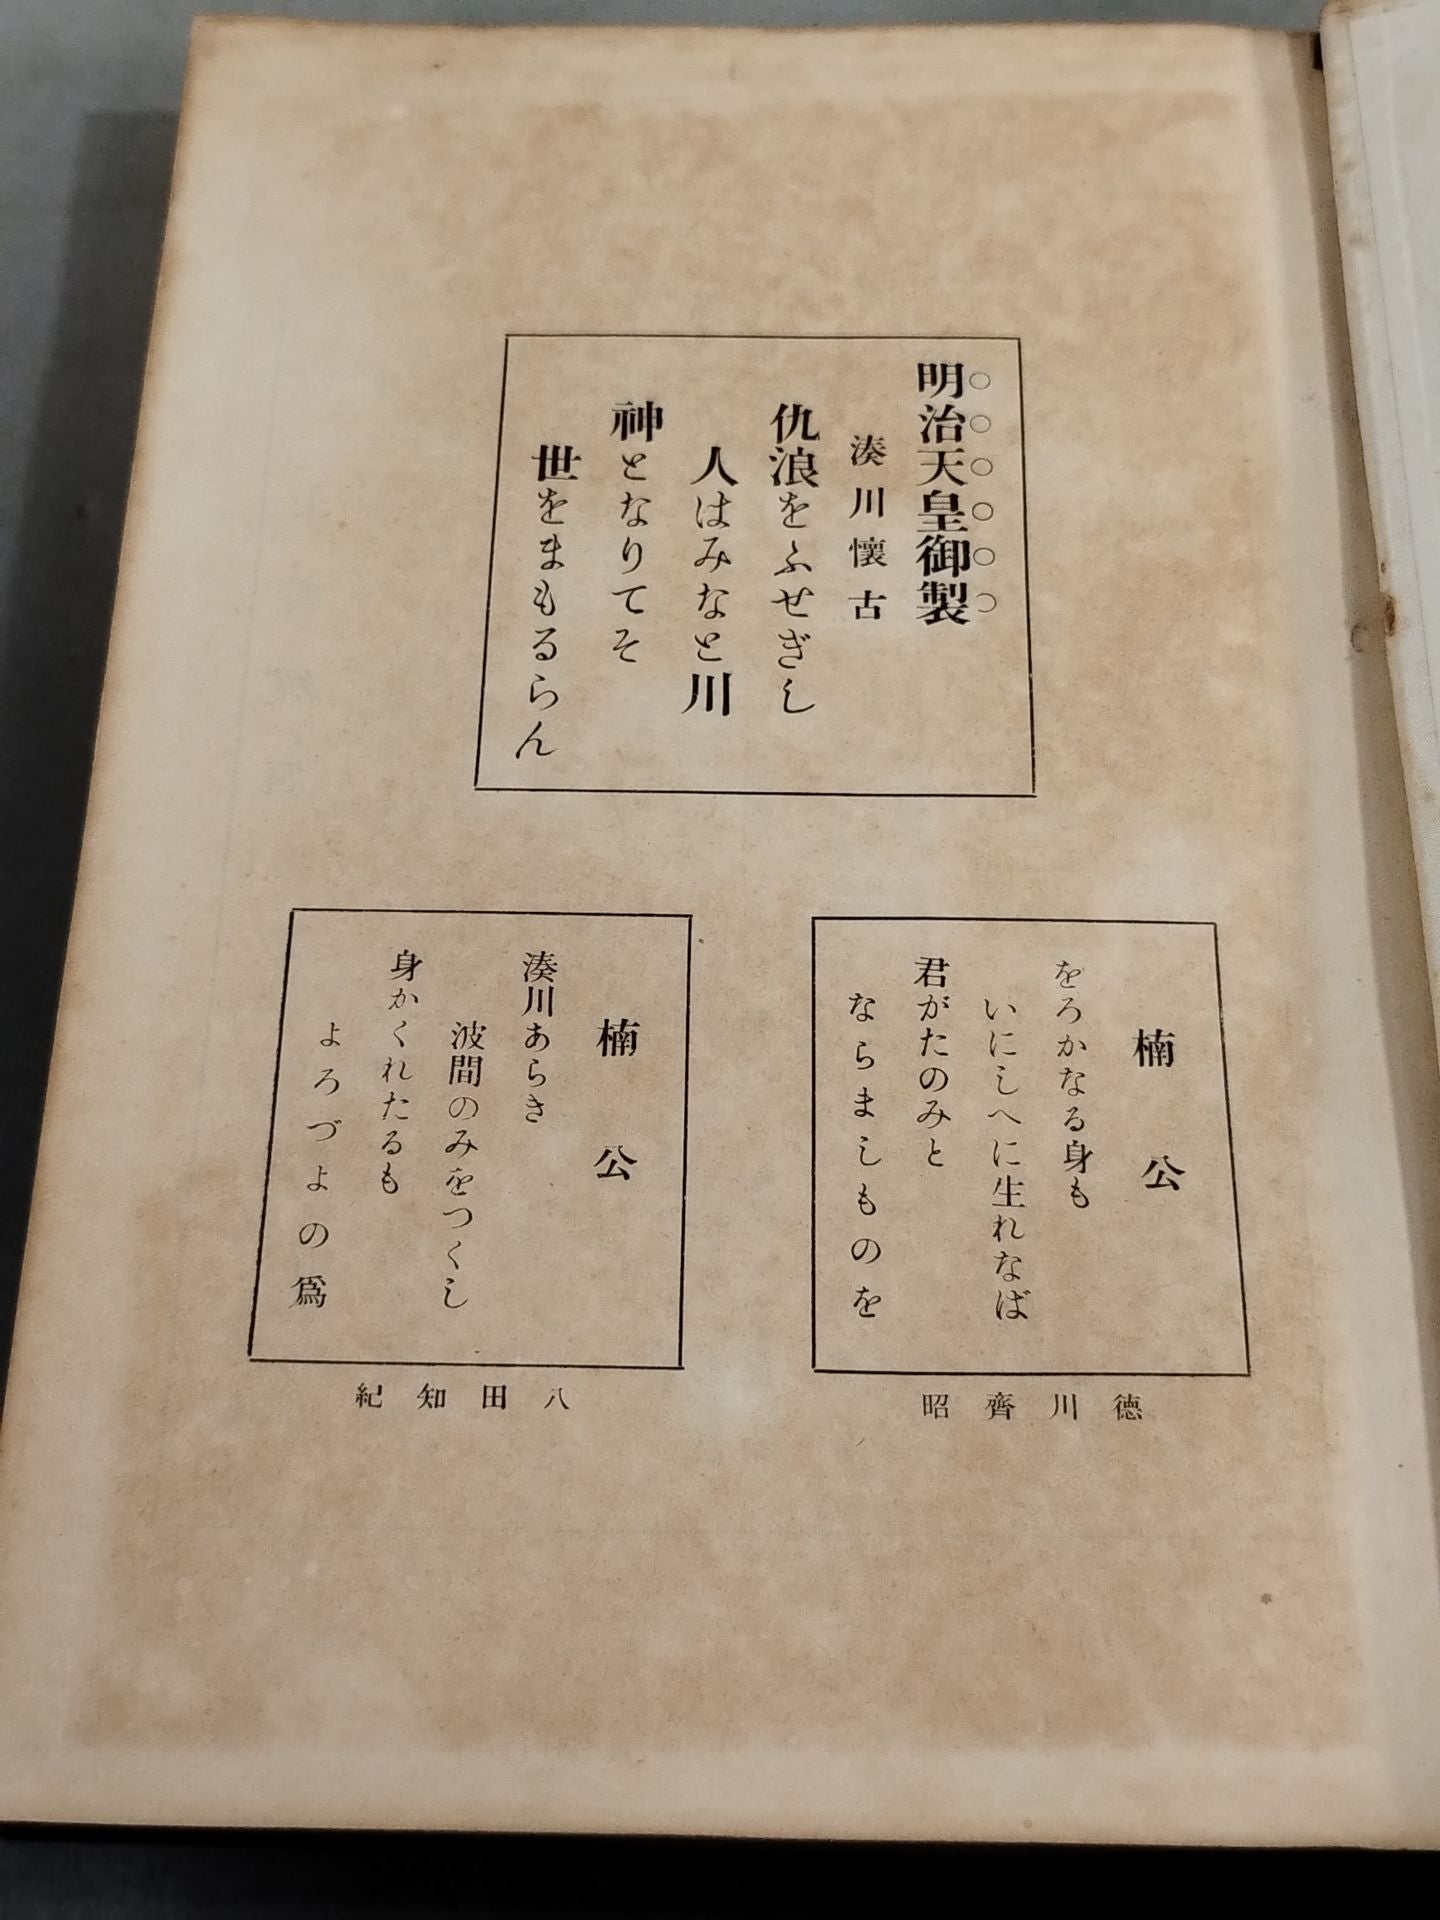 明治天皇御製
湊川懷古
仇浪をふせぎし
人はみなと川
神となりてそ
世をまもるらん
楠公
をろかなる身も
いにしへに生れなば
君がたのみと
ならましものを
德川齊昭
楠公
湊川あらき
波間のみをつくし
身かくれたるも
よろづよの爲
八田知紀